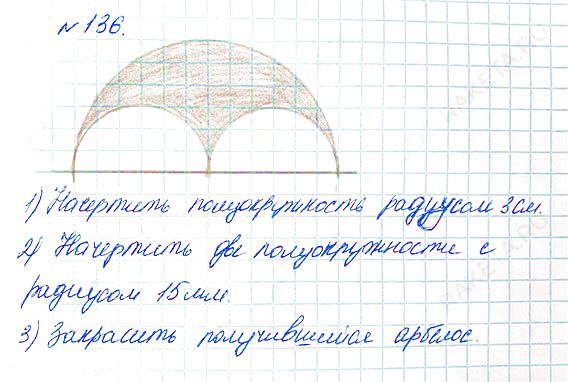 № 136.
1) Начертить полуокружность радиусом 3 см.
2) Начертить две полуокружности с
радиусом 15 мм.
3) Закрасить получившийся арбелос.
RAKETA.RU
RAKETA.RU
RAKETA.RU